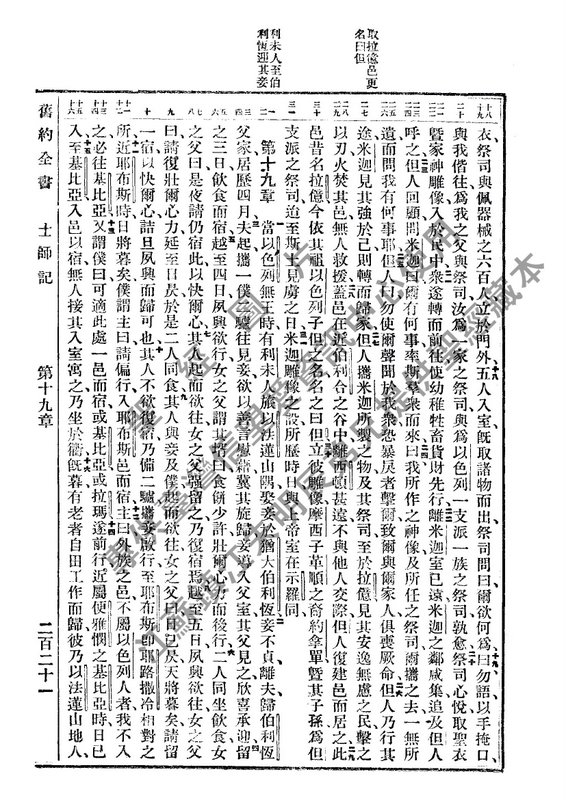 取拉億邑更
名曰但
利未人至伯
利恆迎其妾
衣祭司與佩器械之六百人立於門外五人入室既取諸物而出祭司問曰爾欲何爲曰勿語以手掩口
與我偕往爲我之父與祭司汝爲一家之祭司與爲以色列一支派一族之祭司孰愈祭司心悅取聖衣
暨家神雕像入於民中衆遂轉而前往使幼稚牲畜貨財先行離米迦室已遠米迦之鄰咸集追及但人
呼之但人回顧問米迦曰爾有何事率斯羣衆而來曰我所作之神像及所任之祭司爾攜之去一無所
遺而問我有何事耶但人曰勿使爾聲聞於我衆恐暴戾者擊爾致爾與爾家人俱喪厥命但人乃行其
途米迦見其強於己則轉而歸家但人攜米迦所製之物及其祭司至於拉億見其安逸無慮之民擊之
以刃火焚其邑無人救援蓋邑在近伯利合之谷中離西頓甚遠不與他人交際但人復建邑而居之此
邑昔名拉億今依其祖以色列子但之名名之曰但立彼雕像摩西子革順之裔約拿單暨其子孫爲但
支派之祭司迨至斯土見虜之日米迦雕像之設所歷時日與上帝室在示羅同
第十九章 當以色列無王時有利未人旅以法蓮山隅娶妾於猶大伯利恆妾不貞離夫歸伯利恆
父家居歷四月夫起攜一僕二驢往見妾欲以善言慰藉冀其旋歸妾導入父室其父見之欣喜承迎留
之三日飲食而宿越至四日夙興欲行女之父謂其壻曰食餅少許壯爾心力而後行二人同坐飲食女
之父曰是夜請仍宿此以快爾心其人起而欲往女之父強留之乃復宿焉越至五日夙興欲行女之父
曰請復壯爾心力延至日昃於是二人同食其人與妾及僕起而欲往女之父曰日已昃天將暮矣請留
一宿以快爾心詰旦夙興而歸可也其人不欲復宿乃備二驢攜妾啟行至耶布斯即耶路撒冷相對之
所近耶布斯時日將暮矣僕謂主曰請偏行入耶布斯邑而宿主曰外族之邑不屬以色列人者我不入
之必往基比亞又謂僕曰可適此處一邑而宿或基比亞或拉瑪遂前行近屬便雅憫之基比亞時日已
入至基比亞入邑以宿無人接其入室寓之乃坐於衢既暮有老者自田工作而歸彼乃以法蓮山地人
舊約全書 士師記 第十九章 二百二十一